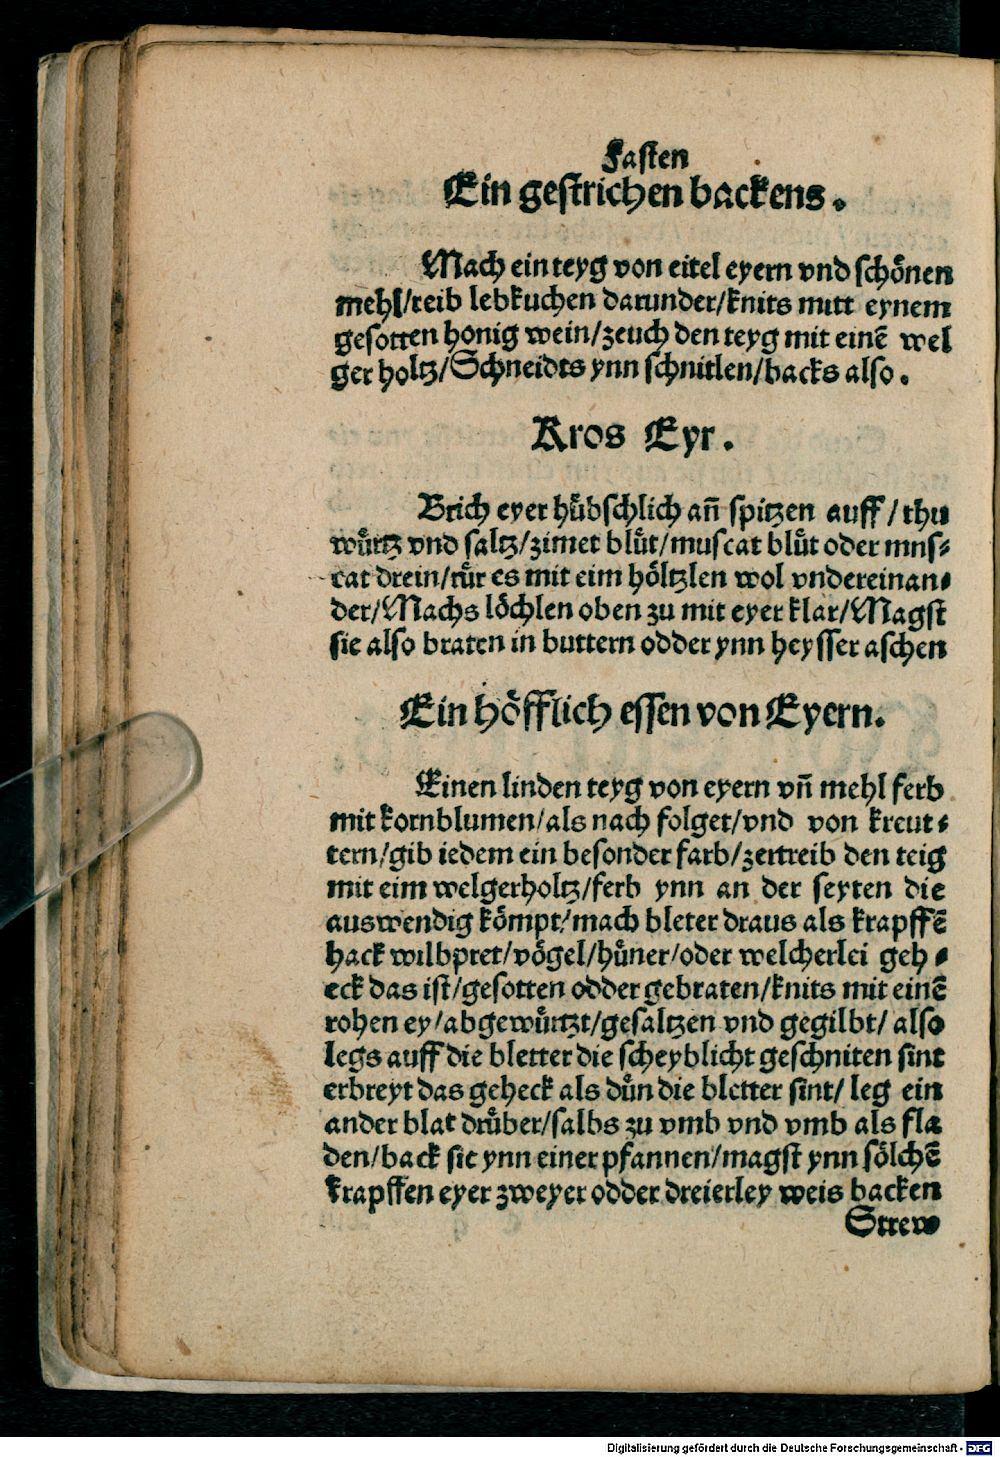 Fasten
Ein gestrichen backens.
Mach ein teyg von eitel eyern vnd schoͤnen
mehl/reib lebkuchen darunder/knits mitt eynem
gesotten honig wein/zeuch den teyg mit einē wel
ger holtz/Schneidts ynn schnitlen/backs also.
Kros Eyr.
Brich eyer huͤbschlich an̄ spitzen auff/thu
wuͤrtz vnd saltz/zimet bluͤt/muscat bluͤt oder mns⸗
cat drein/ruͤr es mit eim hoͤltzlen wol vndereinan⸗
der/Machs loͤchlen oben zu mit eyer klar/Magst
sie also braten in buttern odder ynn heysser aschen
Ein hoͤfflich essen von Eyern.
Einen linden teyg von eyern vn̄ mehl ferb
mit kornblumen/als nach folget/vnd von kreut⸗
tern/gib iedem ein besonder farb/zertreib den teig
mit eim welgerholtz/ferb ynn an der seyten die
auswendig koͤmpt/mach bleter draus als krapffē
hack wilbpret/voͤgel/huͤner/oder welcherlei geh⸗
eck das ist/gesotten odder gebraten/knits mit einē
rohen ey/abgewuͤrtzt/gesaltzen vnd gegilbt/also
legs auff die bletter die scheyblicht geschniten sint
erbreyt das geheck als duͤn die bletter sint/leg ein
ander blat druͤber/salbs zu vmb vnd vmb als fla
den/back sie ynn einer pfannen/magst ynn soͤlchē
krapffen eyer zweyer odder dreierley weis backen
Strew
Digitalisierung gefördert durch die Deutsche Forschungsgemeinschaft - DFG